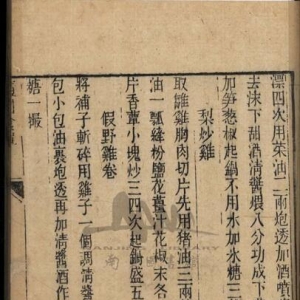 漂四次用菜油二兩炮透加酒噴
去沫下甜酒清醬煨八分功成下
加笋葱椒起鍋不用水加氷糖三
梨炒雞
取雛雞胸肉切片先用猪油三兩
油一瓢縴粉鹽花薑汁花椒末各
片香蕈小塊炒三四次起鍋盛五
假野雞卷
將補子斬碎用雞子一個調清醬
包小包油裏炮透再加清醬酒作
糖一撮